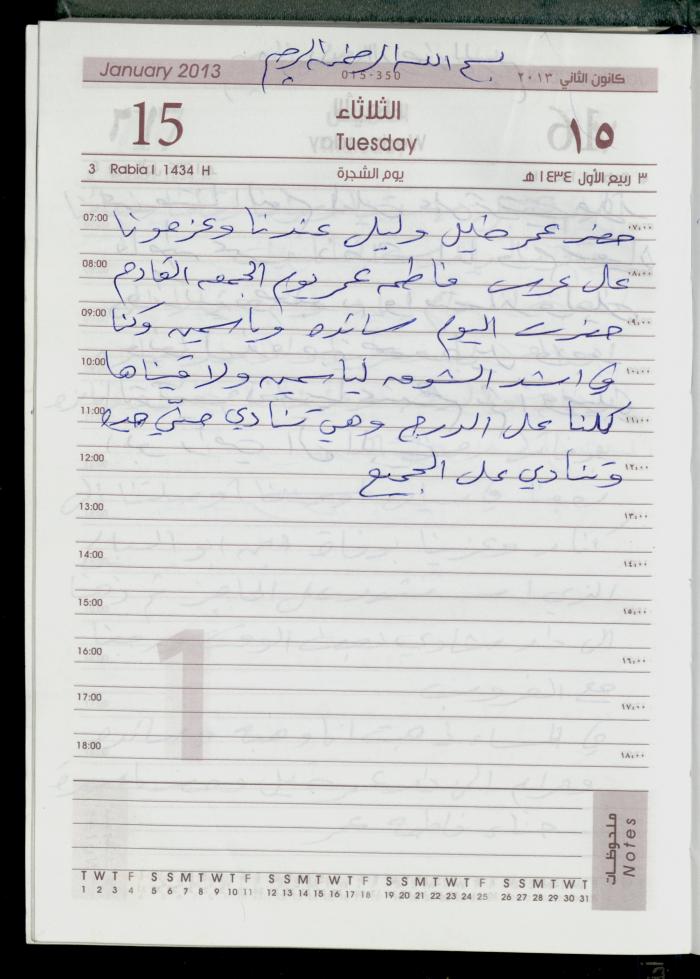 بسم الله الرحمن الرحيم
January 2013 015-350 كانون الثاني ٢٠١٣
15 الثلاثاء ١٥
Tuesday
3 Rabia I 1434 H يوم الشجرة ٣ ربيع الأول ١٤٣٤ هـ
07:00 حضر عمر خليل وليل عندنا وعزمونا ٠٧،٠٠
08:00 عل عرس فاطمه عمر يوم الجمعه القادم ٠٨،٠٠
09:00 حضرت اليوم سائده وياسمين وكنا ٠٩،٠٠
10:00 في اشد الشوق لياسمين ولاقيناها ١٠،٠٠
11:00 كلنا عل الدرج وهي تنادي ستي ١١،٠٠
12:00 وتنادي عل الجميع ١٢،٠٠
13:00 ١٣،٠٠
14:00 ١٤،٠٠
15:00 ١٥،٠٠
16:00 ١٦،٠٠
17:00 ١٧،٠٠
18:00 ١٨،٠٠
1
ملحوظات
Notes
T W T F S S M T W T F S S M T W T F S S M T W T F S S M T W T
1 2 3 4 5 6 7 8 9 10 11 12 13 14 15 16 17 18 19 20 21 22 23 24 25 26 27 28 29 30 31